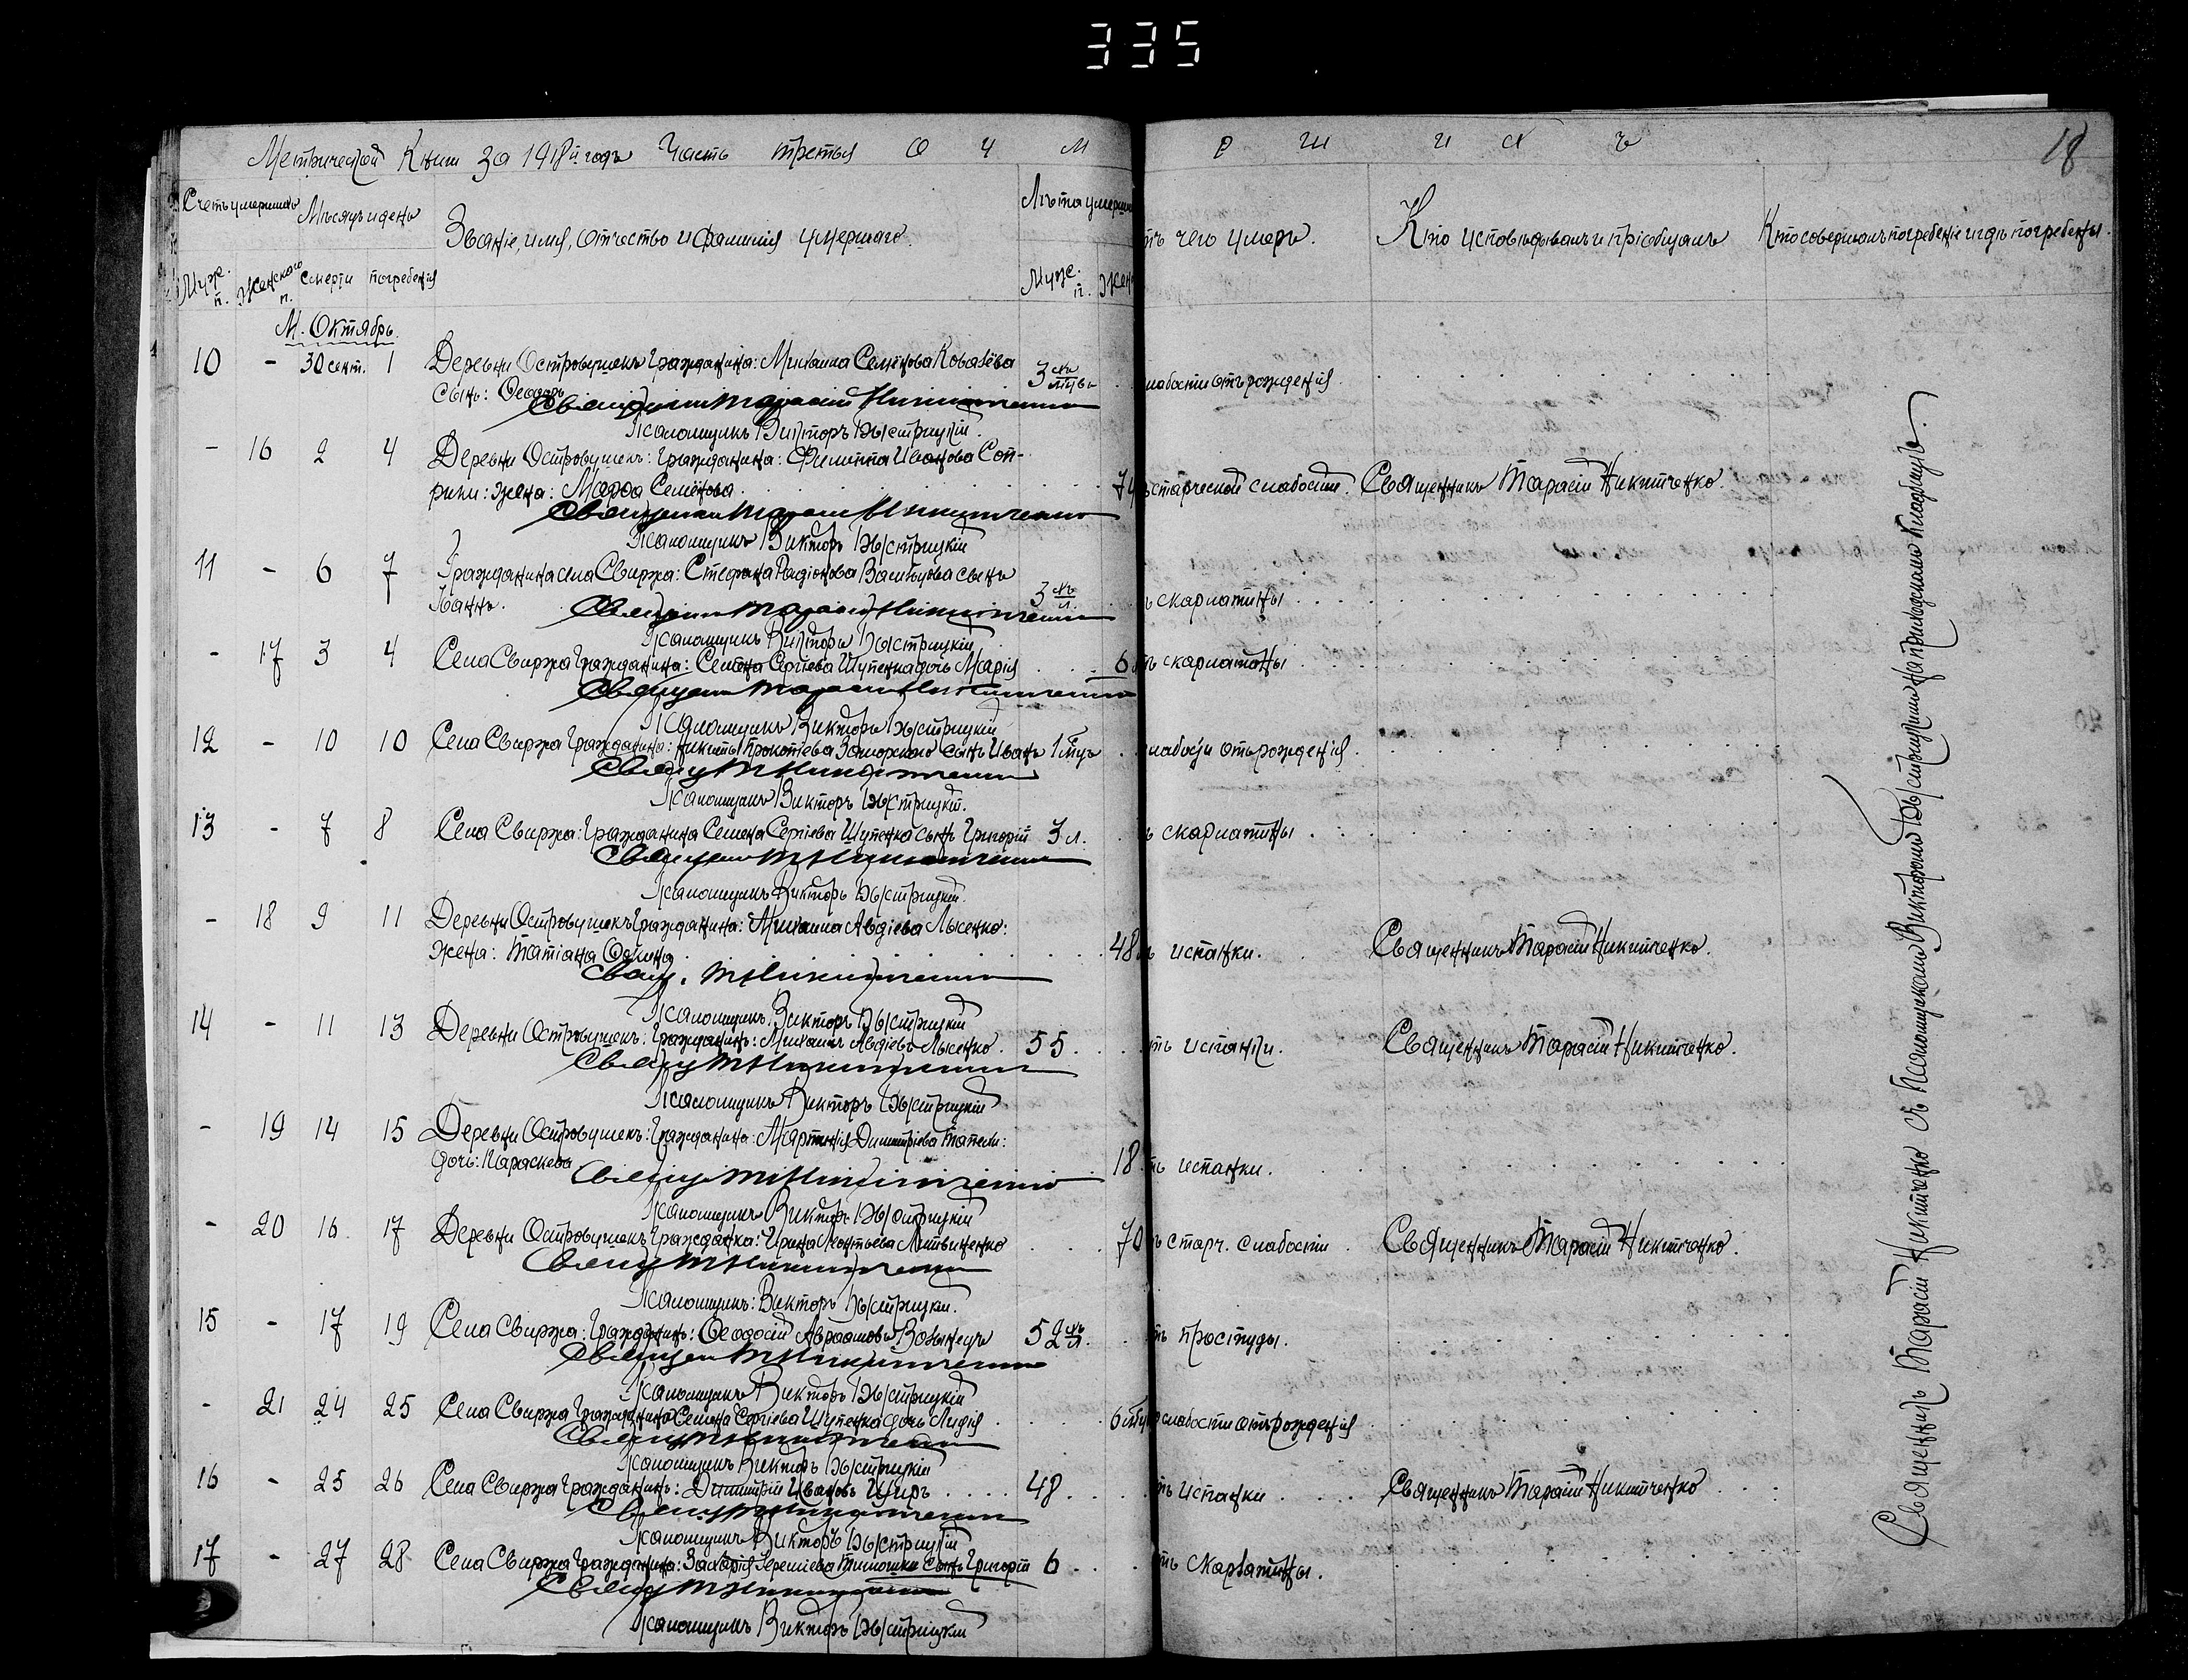 335
Метрической Книги за 1918й годъ Часть третья О У М Е Р Ш И Х Ъ
18
Счетъ умершихъ
Мѣсяцъ и день
Званіе, имя, отчество и фамилія умершаго.
Лѣта умерш
тъ чего умеръ.
Кто исповѣдывалъ и пріобщалъ
Кто совершалъ погребеніе и гдѣ погребены.
Муж. п.
Женского п.
Смерти
погребенія
Муж. п.
Жен
М. Октябрь.
10 - 30 сент. 1 Деревни Островушекъ Гражданина: Михаила Семёнова Ковалёва 3 лабости отъ рожденія
сынъ: Ѳеодоръ
Священникъ Тарасій Никитченко
Псаломщикъ Викторъ Быстрицкій.
- 16 2 4 Деревни Островушекъ: Гражданина: Филиппа Иванова Соп-
рики: жена: Марѳа Семёнова 74 старческой слабости. Священникъ Тарасій Никитченко.
Священникъ Тарасій Никитченко
Псаломщикъ Викторъ Быстрицкій
11 - 6 7 Гражданина села Свиржа: Стефана Радіонова сынъ
Іоаннъ. 3 л. ъ скарлатины
Священ Тарасій Никитченко
Псаломщикъ Викторъ Быстрицкій
- 17 3 4 Села Свиржа Гражданина: Семёна Сергіева Шупенка дочь Марія 6 тъ скарлатины
Священ Тарасій Никитченко
Псаломщикъ Викторъ Быстрицкій
12 - 10 10 Села Свиржа Гражданина: Никиты Прокопіева сынъ Иванъ 1 лабости отъ рожденія.
Свящ Т Никитченко
Псаломщикъ Викторъ Быстрицкій.
13 - 7 8 Села Свиржа: Гражданина Семена Сергіева Шупенка сынъ Григорій 3 л. ъ скарлатины
Священ Т Никитченко
Псаломщикъ Викторъ Быстрицкій.
- 18 9 11 Деревни Островушекъ Гражданина: Михаила Авдіева Лысенко:
жена: Татіана Фокина 48 ъ испанки. Священникъ Тарасій Никитченко.
Свящ. Т Никитченко
Псаломщикъ Викторъ Быстрицкій
14 - 11 13 Деревни Островушекъ: Гражданинъ: Михаилъ Авдіевъ Лысенко. 55. тъ испанки. Священникъ Тарасій Никитченко.
Свящ Т Никитченко
Псаломщикъ Викторъ Быстрицкій
- 19 14 15 Деревни Островушекъ: Гражданина: Мартинія Димитріева
дочь: Параскева 18 тъ испанки.
Свящ Т Никитченко
Псаломщикъ Викторъ Быстрицкій
- 20 16 17 Деревни Островушекъ Гражданка: Ирина Леонтьева Литвиненко 70 ъ старч. слабости Священникъ Тарасій Никитченко.
Свящ Т Никитченко
Псаломщикъ: Викторъ Быстрицкій.
15 - 17 19 Села Свиржа: Гражданинъ: Ѳеодосій Авраамовъ Волынецъ 52 тъ простуды.
Священ Т Никитченко
Псаломщикъ Викторъ Быстрицкій
- 21 24 25 Села Свиржа Гражданина Семёна Сергіева Шупенка дочь Лидія 6 слабости отъ рожденія
Свящ Т Никитченко
Псаломщикъ Викторъ Быстрицкій
16 - 25 26 Села Свиржа Гражданинъ: Димитрій Ивановъ Щиръ 48. тъ испанки Священникъ Тарасій Никитченко
Свящ Т Никитченко
Псаломщикъ Викторъ Быстрицкій
17 - 27 28 Села Свиржа Гражданина: Захарія Іереміева Тимошка сынъ Григорій 6 тъ скарлатины.
Свящ Т Никитченко
Псаломщикъ Викторъ Быстрицкій
Священникъ Тарасій Никитченко съ Псаломщикомъ Викторомъ Быстрицкимъ на приходскомъ кладбищѣ.